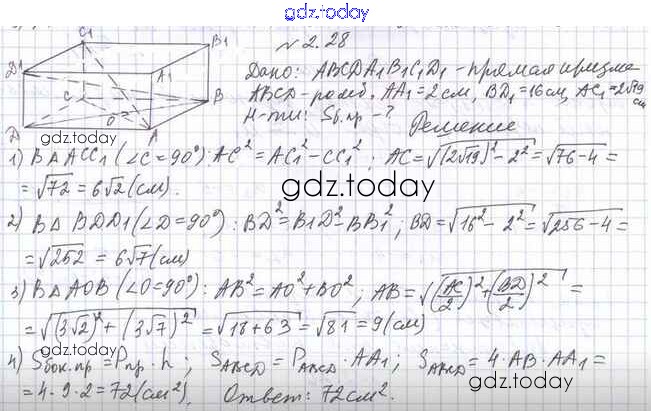 gdz.today
№ 2.28
C1
B1
D1
A1
C
B
O
D
A
Дано: ABCDA1B1C1D1 - прямая призма
ABCD - ромб. AA1 = 2 см, BD1 = 16 см, AC1 = 2√19 см
Н-ти: Sб.пр - ?
Решение
gdz.today
1) В △ ACC1 (∠C = 90°) AC² = AC1² - CC1² ; AC = √((2√19)² - 2²) = √76-4 =
= √72 = 6√2 (см).
gdz.today
2) В △ BDD1 (∠D = 90°) : BD² = B1D² - BB1² ; BD = √(16² - 2²) = √256-4 =
= √252 = 6√7 (см)
3) В △ AOB (∠O = 90°) : AB² = AO² + BO² ; AB = √((AC/2)² + (BD/2)²) =
= √((3√2)² + (3√7)²) = √18+63 = √81 = 9 (см)
gdz.today
4) Sбок.пр = Pпр. h ; SABCD = PABCD · AA1 ; SABCD = 4 · AB · AA1 =
= 4 · 9 · 2 = 72 (см²). Ответ: 72 см².
gdz.today
gdz.today